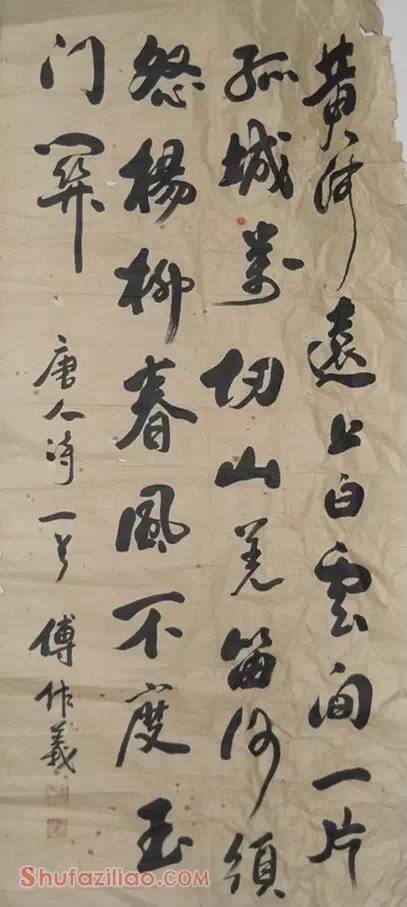 黄河遠上白雲间一片
孤城萬仞山羌笛何須
怨楊柳春風不度玉
门関 唐人诗一首 傅作義
Shufaziliao.com